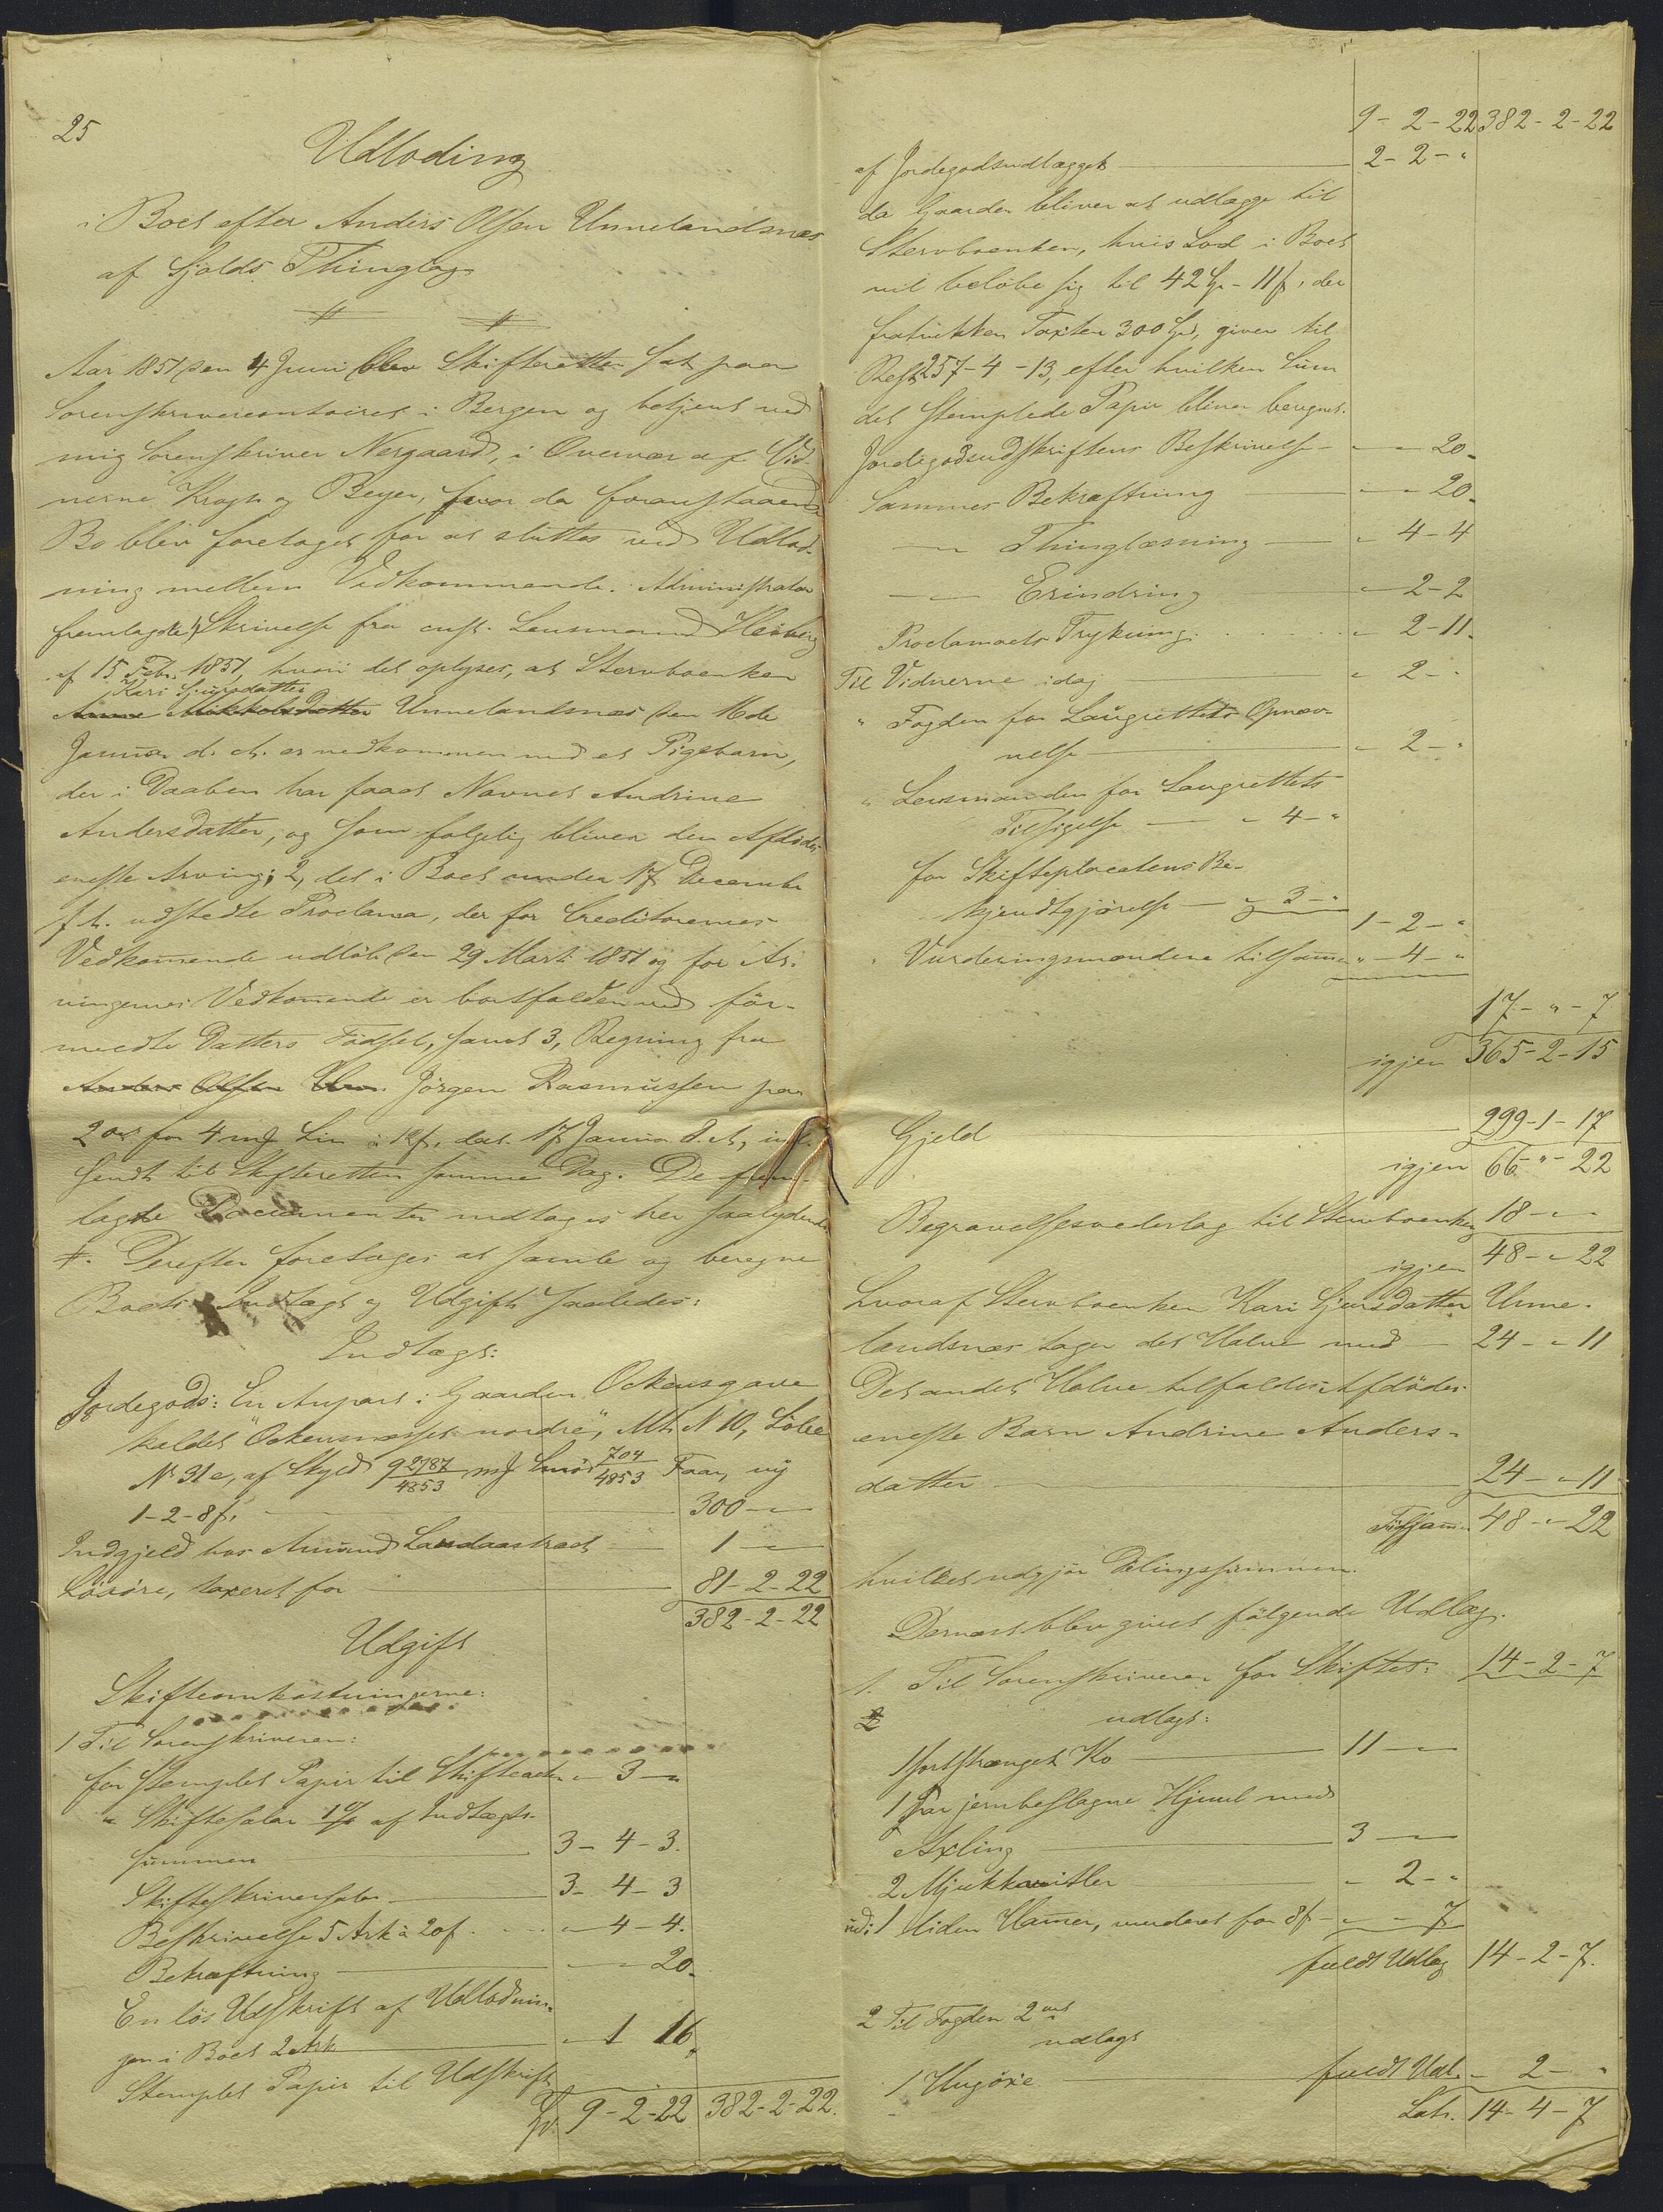 25
Udlodning
i Boet efter Anders Olsen Unnelandsnæs
af Fjelds Thinglag
Aar 1851 den 4 Juni blev Skifteretten sat paa
Sorenskrivercontoiret i Bergen og betjent ved
mig Sorenskriver Nergaard, i Overvær af Vid-
nerne Krogh og Beyer, hvor da foranstaaende
Bo blev foretaget for at sluttes ved Udlod-
ning mellem Vedkommende. Administrator
fremlagde 1, Skrivelse fra const. Lensmand
af 15 Febr. 1851, hvori det oplyses, at Stervboenken
Kari Sjursdatter
Anna Mikkelsdatter Unnelandsnæs den 16de
Januar d. A. er nedkommen med et Pigebarn,
der i Daaben har faaet Navnet Andrine
Andersdatter, og som følgelig bliver den Afdødes
eneste Arving; 2, det i Boet under 17 December
f. A. udstedte Proclama, der for Creditorernes
Vedkommende udløb den 29 Marti 1851 og for Ar-
vingernes Vedkommende er bortfalden ved før-
meldte Datters Fødsel, samt 3, Regning fra
Anders Olsen Unn. Jørgen Rasmussen paa
2 ort for 4 mk Lin à 12 s, dat. 17 Januar d. A, ind-
sendt til Skifteretten samme Dag. De frem-
lagte Documenter indtages her saalydende
#. Derefter foretages at samle og beregne
Boets Indtægt og Udgift saaledes:
Indtægt:
Jordegods: En Anpart i Gaarden Ockensgave
kaldet "Ockensnæsset nordre", Mt. N 10, Løbe
No 31c, af Skyld 9 2187/4853 mk Smør 704/4853 Faar, ny
1-2-8 s, 300 - "
Indgjeld hos Amund Landaastræet 1 - "
Løsøre, taxeret for 81-2-22
382-2-22
Udgift
Skifteomkostningerne:
1 Til Sorenskriveren:
for stemplet Papir til Skifteacten " 3 - "
" Skiftesalær 1 % af Indtægts-
summen 3- 4-3.
Skifteskriversalær 3- 4-3
Beskrivelse 5 Ark à 20 s " - 4-4.
Bekræftning " - " 20.
En løs Udskrift af Udlodnin-
gen i Boet 2 Ark " 1 16,
Stemplet Papir til Udskrift
9-2-22 382-2-22.
9- 2-22 382-2-22
af Jordegodsudlægget 2-2-"
da Gaarden bliver at udlægge til
Stervboenken, hvis Lod i Boet
vil beløbe sig til 42 Spd - 11 s, der
fratrukken Taxten 300 Spd, giver til
Rest 257-4-13, efter hvilken Sum
det stemplede Papir bliver beregnet.
Jordegodsudskriftens Beskrivelse " - " 20.
Sammes Bekræftning " - " 20.
— Thinglæsning " 4-4
— Erindring " 2-2
Proclamaets Trykning " 2-11.
Til Vidnerne idag " 2-"
" Fogden for Laugrettets Opnæv-
nelse " 2-"
" Lensmanden for Laugrettets
Tilsigelse " 4-"
for Skifteplacatens Be-
kjendtgjørelse " 3-"
1-2-"
" Vurderingsmændene tilsammen " - 4-"
17-"-7
igjen 365-2-15
Gjeld 299-1-17
igjen 66-"-22
Begravelsesvederlag til Stervboenken 18-"-
igjen 48-"-22
hvoraf Stervboenken Kari Sjursdatter Unne-
landsnæs tager det Halve med 24-"-11
Det andet Halve tilfalder Afdødes
eneste Barn Andrine Anders-
datter 24-"-11
Tilsammen 48-"-22
hvilket udgjør Delingssummen.
Dernæst blev givet følgende Udlæg.
1. Til Sorenskriveren for Skiftet: 14-2-7
2 udlagt:
1 sortstranget Ko 11 - "
1 Par jernbeslagne Hjuul med
Axling 3 - "
2 Mjukkavitler " 2-"
udi 1 liden Hammer, vurderet for 8 s " - " 7
fuldt Udlæg 14-2-7.
2 Til Fogden 2 ort
udlagt
1 Hugøxe fuldt Udl. " 2- "
Lats. 14-4-7